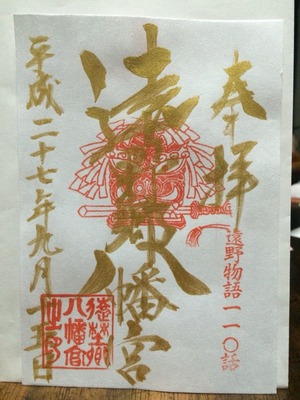 奉拝
遠野物語一一〇話
遠野八幡宮
平成二十七年九月十五日
遠野郷
八幡宮
之印